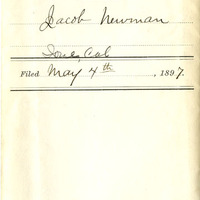 Jacob Newman
Ione, Cal
Filed May 4th, 1897.